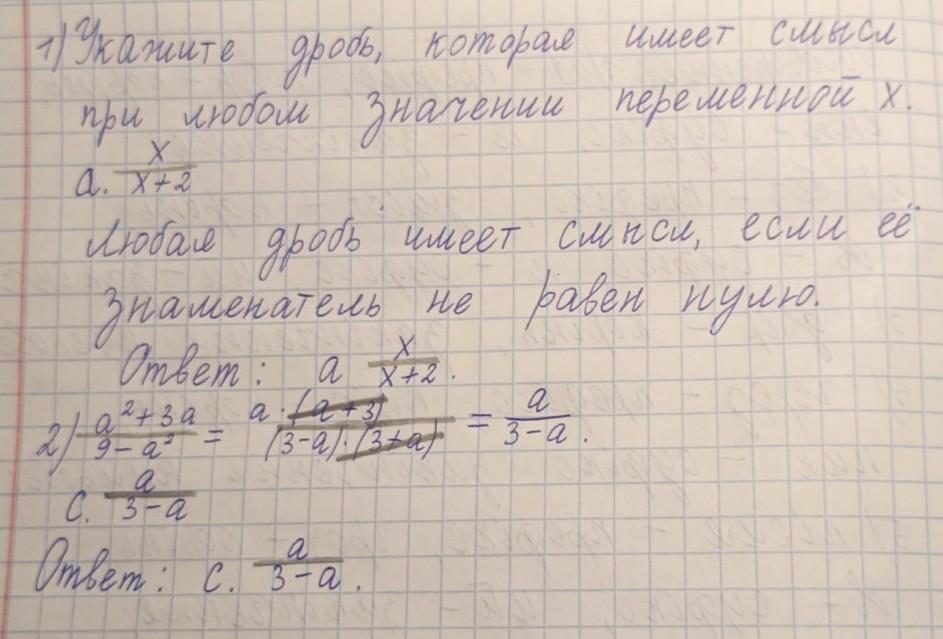 1) Укажите дробь, которая имеет смысл
при любом значении переменной x.
a. x/(x+2)
Любая дробь имеет смысл, если её
знаменатель не равен нулю.
Ответ: a x/(x+2).
2) (a²+3a)/(9-a²) = a·(a+3)/((3-a)·(3+a)) = a/(3-a).
c. a/(3-a)
Ответ: c. a/(3-a).